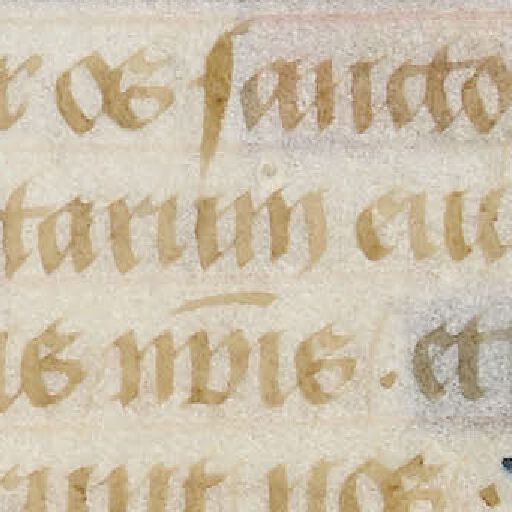 r os sancto
tarum eiu
is nr̄is . et
runt nos .